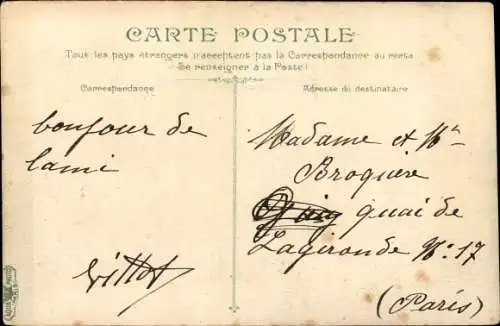 CARTE POSTALE
Tous les pays étrangers n'acceptent pas la Correspondance au recto
(Se renseigner à la Poste)
Correspondance
Adresse du destinataire
bonjour de
lami
Vittot
Madame et Mr
Broquere
quai de
Lagironde No 17
(Paris)